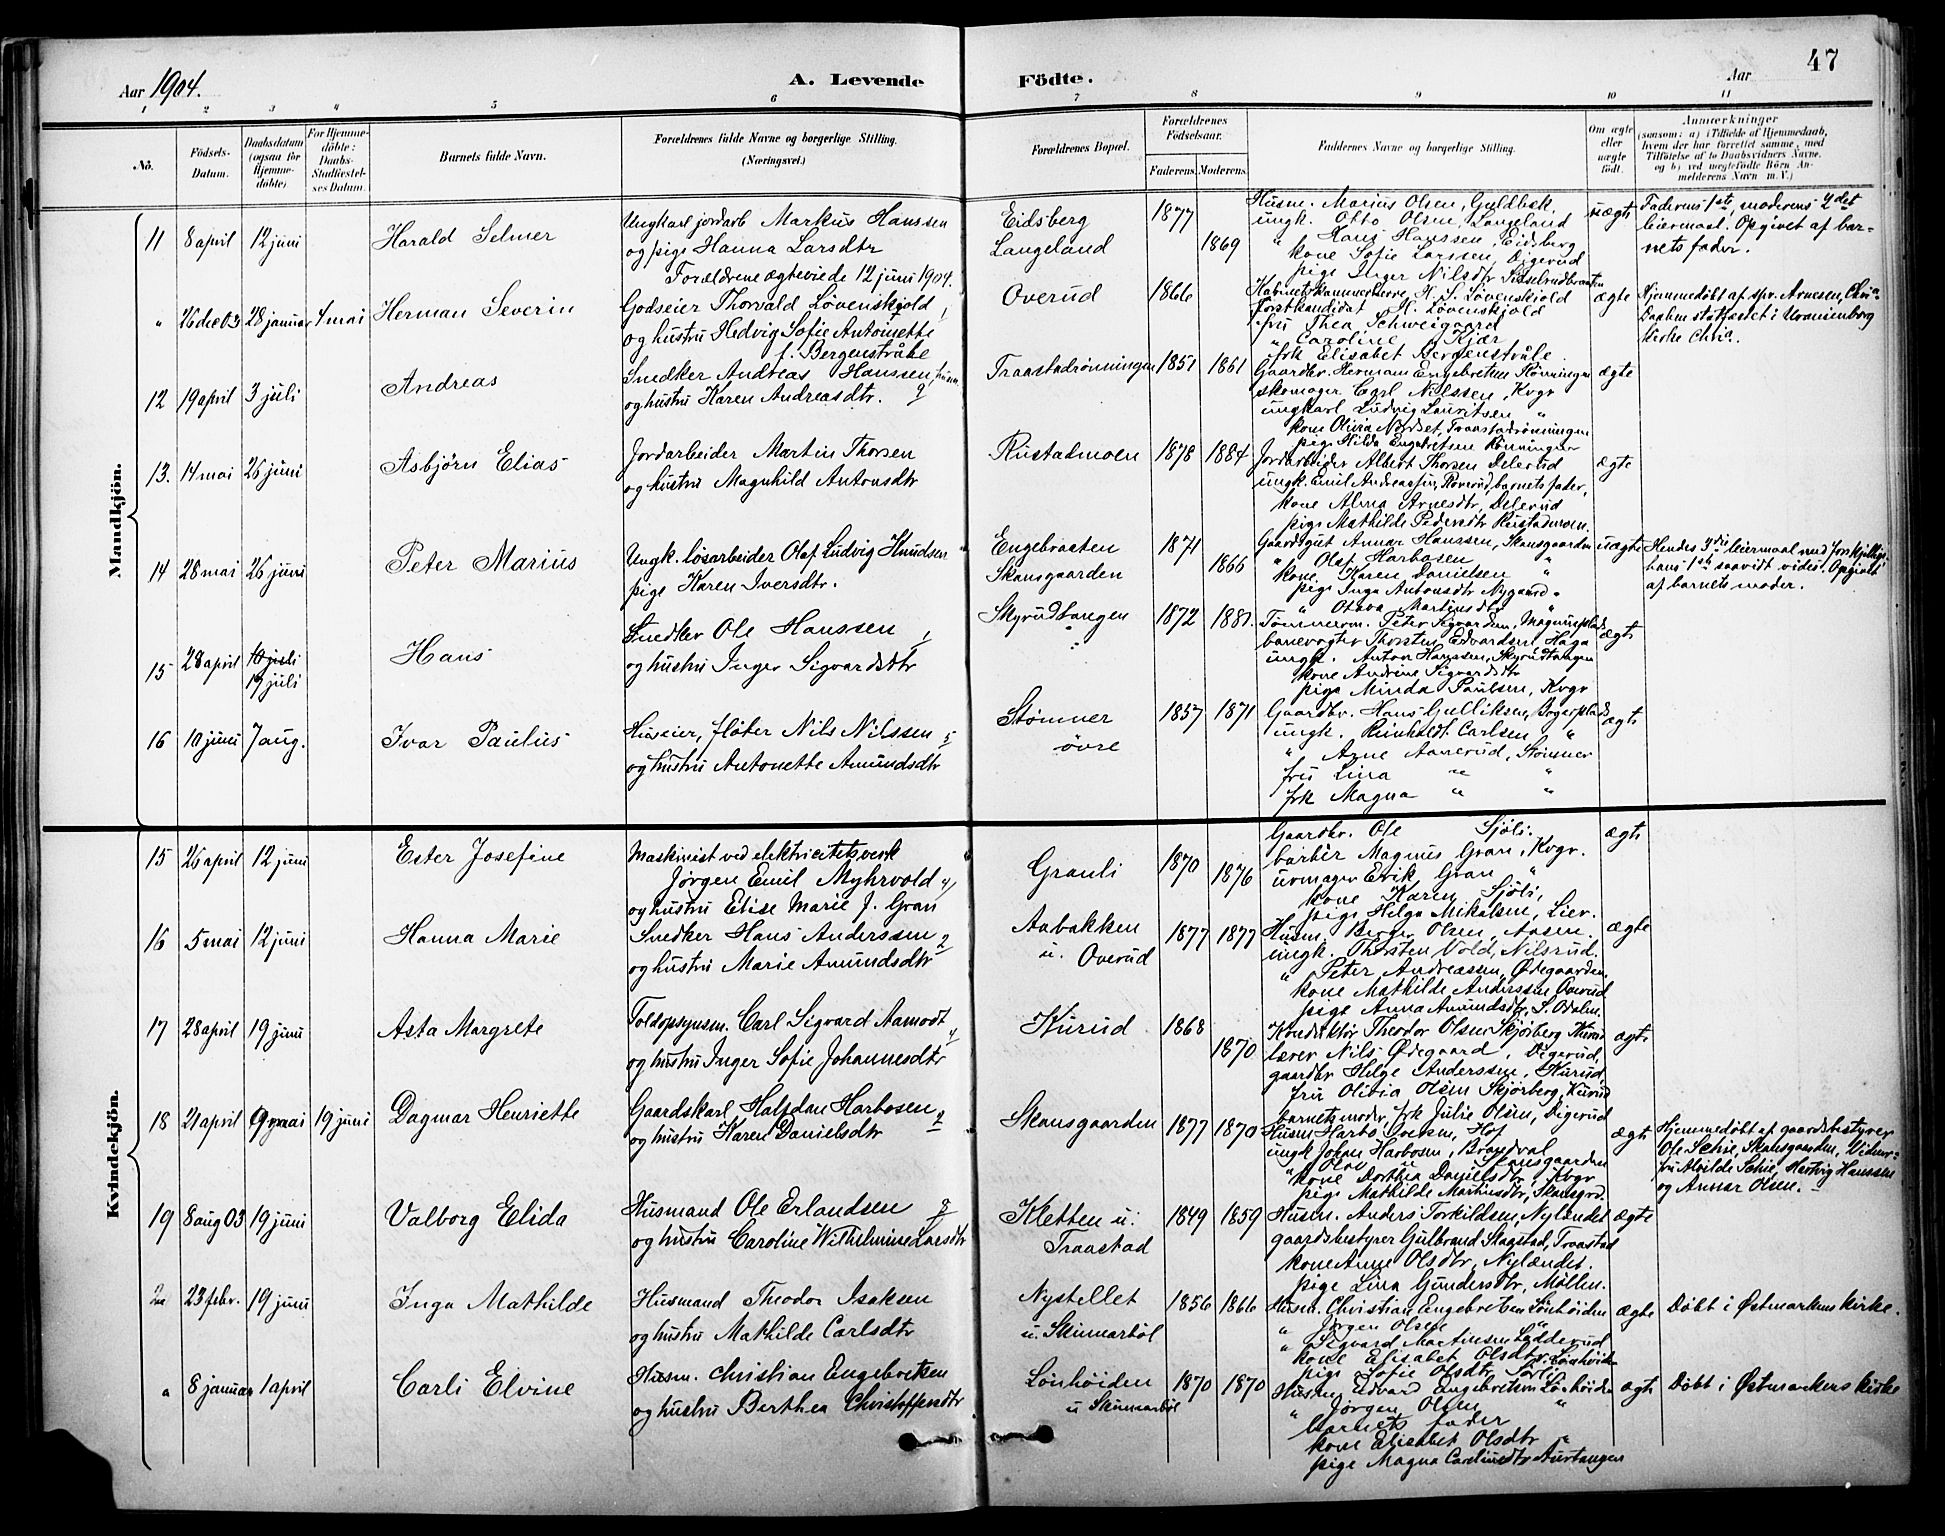 Aar 1904.
A. Levende Födte.
Aar 47
1 2 3 4 5 6 7 8 9 10 11
No.
Födsels-Datum.
Daabsdatum (ogsaa for Hjemme-döbte)
For Hjemme-döbte: Daabs-Stadfæstel-ses Datum.
Barnets fulde Navn.
Forældrenes fulde Navne og borgerlige Stilling.
(Næringsvei.)
Forældrenes Bopæl.
Forældrenes Födselsaar.
Faderens. Moderens.
Faddernes Navne og borgerlige Stilling.
Om ægte eller uægte födt.
Anmærkninger
(saasom: a) i Tilfælde af Hjemmedaab,
hvem der har forrettet samme, med
Tilföielse af to Daabsvidners Navne,
og b) ved uægtefödte Börn An-
melderens Navn m. V.)
Mandkjön.
11 8 april 12 juni Harald Selmer
Ungkarl jordarb Markus Hanssen
og pige Hanna Larsdtr
Forældrene ægteviede 12 juni 1904.
Eidsberg 1877
Langeland 1869
Husm. Marius Olsen, Guldbæk.
ungk. Otto Olsen, Langeland
" Hans Hanssen, Eidsberg
kone Sofie Larssen, Digerud
pige Inger Nilsdtr
uægte
Faderens 1ste, moderens 2det
leiermaal. Opgivet af bar-
nets fader.
" 26 dec 03 28 januar 1 mai Herman Severin
Godseier Thorvald Løvenskjold
og hustru Hedvig Sofie Antoinette
f. Bergenstråhle
Overud 1866
Kabinetskammerherre H. S. Løvenskjold
Forstkandidat H. Løvenskjold
fru Thea Schweigaard
" Caroline Kjær
frk Elisabet Bergenstråle
ægte
Hjemmedøbt af spr. Arnesen, Chra.
Daaben stadfæstet i Uranienborg
Kirke Chra.
12 19 april 3 juli Andreas
Snedker Andreas Hanssen, husm.
og hustru Karen Andreasdtr. 9
Traastadrønningen 1851 1861
Gaardbr. Herman Engebretsen Rønningen
skomager Carl Nilssen, Kvgr
ungkarl Ludvig Lauritsen "
kone Olivia Nordset, Traastadrønningen
pige Hilda Engebretsen Rønningen
ægte
13. 14 mai 26 juni Asbjörn Elias
Jordarbeider Martin Thorsen
og hustru Magnhild Antonsdtr
Rustadmoen 1878 1884
Jordarbeider Albert Thorsen Delerud
ungk. Emil Andreassen, Roverud, barnets fader,
kone Alma Arnesdtr, Delerud
pige Mathilde Pedersdtr Rustadmoen.
ægte
14 28 mai 26 juni Peter Marius
Ungk. løsarbeider Olaf Ludvig Knudsen
pige Karen Iversdtr.
Engebraaten 1871
Skansgaarden 1866
Gaardsgut Annar Hanssen, Skansgaarden
" Olaf Harbosen "
kone Karen Danielsen "
pige Inga Antonsdtr Nygaard
" Otava Martinsdtr "
uægte
Hendes 3die leiermaal med forskjellige
hans 1ste saavidt vides. Opgivet
af barnets moder.
15 28 april 10 juli
17 juli Hans
Snedker Ole Hanssen 1
og hustru Inger Sigvardsdtr
Skyrudtangen 1872 1881.
Tømmerm. Peter Sigvardsen, Magnusplads
banevogter Thorsten Edvardsen, Haga
ungk. Anton Hanssen, Skyrudtangen
kone Andrine Sigvardsdtr
pige Minda Paulsen, Kvgr
ægte
16 10 juni 7 aug. Ivar Paulus
Huseier, fløter Nils Nilssen 5
og hustru Antonette Amundsdtr
Stømner
øvre 1857 1871
Gaardbr. Hans Gulliksen,
ungk. Reinholdt Carlsen, "
" Arne Aanerud, Stømner
fru Lina " "
frk Magna " "
ægte
Kvindekjön.
15 26 april 12 juni Ester Josefine
Maskinist ved elektricitetsverk
Jørgen Emil Myhrvold 4
og hustru Elise Marie f. Gran
Granli 1870 1876
Gaardbr. Ole Sjøli.
barbér Magnus Gran, Kvgr.
urmager Erik Gran "
kone Karen Sjøli,
pige Helga Mikalsen, Lier.
ægte
16 5 mai 12 juni Hanna Marie
Snedker Hans Anderssen 2
og hustru Marie Amundsdtr
Aabakken
u. Overud 1877 1877
Husm. Berger Olsen, Aasen.
ungk. Thorsten Vold, Nilsrud.
" Peter Andreasen, Ødegaarden,
kone Mathilde Anderssen Overud
pige Anna Amundsdtr, S. Odalen.
ægte
17 28 april 19 juni Asta Margrete
Toldopsynsm. Carl Sigvard Aamodt 4
og hustru Inger Sofie Johannesdtr
Kurud 1868 1870
Konduktør Theodor Olsen Skjørberg Kurud
lærer Nils Ødegaard, Digerud,
gaardbr Helge Anderssen, Kurud,
fru Olivia Olsen Skjørberg, Kurud
barnets moder, frk Julie Olsen, Digerud
ægte
18 21 april 9 mai 19 juni Dagmar Henriette
Gaardskarl Halfdan Harbosen 2
og hustru Karen Danielsdtr
Skansgaarden 1877 1870
Husm Harbo Iversen, Hof
ungk Johan Harbosen, Brandval
" Olav " Skansgaarden
kone Dorthea Danielsdtr, Kvgr
pige Mathilde Martinsdtr, Skansgrd.
ægte
Hjemmedøbt af gaardsbestyrer
Ole Schie, Skansgaarden, Vidner:
fru Alvilde Schie, Hartvig Hanssen
og Annar Olsen.
19 8 aug 03 19 juni Valborg Elida
Husmand Ole Erlandsen 8
og hustru Caroline Wilhelmine Larsdtr
Kletten u.
Traastad 1849 1859
Husm. Anders Torkildsen, Nylændet
gaardsbestyrer Gulbrand Slagstad, Traastad
kone Anne Olsdtr, Nylændet.
pige Lina Gundersdtr, Møllen.
ægte
20 23 febr. 19 juni Inga Mathilde
Husmand Theodor Isaksen
og hustru Mathilde Carlsdtr
Nystellet
u. Skinnarbøl 1856 1866
Husm. Christian Engebretsen Lønhøiden
" Jørgen Olsen "
" Sigvard Martinsen Lødderud
kone Elisabet Olsdtr Lønhøiden
pige Sofie Olsdtr Sørli
ægte
Døbt i Østmarkens kirke.
" 8 januar 1 april Carli Elvine
Husm. Christian Engebretsen
og hustru Berthea Christoffersdtr
Lønhøiden
u Skinnarbøl 1870 1870
Husm. Edvard Engebretsen Lønhøiden
" Jørgen Olsen "
barnets fader
kone Elisabet Olsdtr "
pige Magna Carelinusdtr Aurtangen
ægte
Døbt i Østmarkens kirke